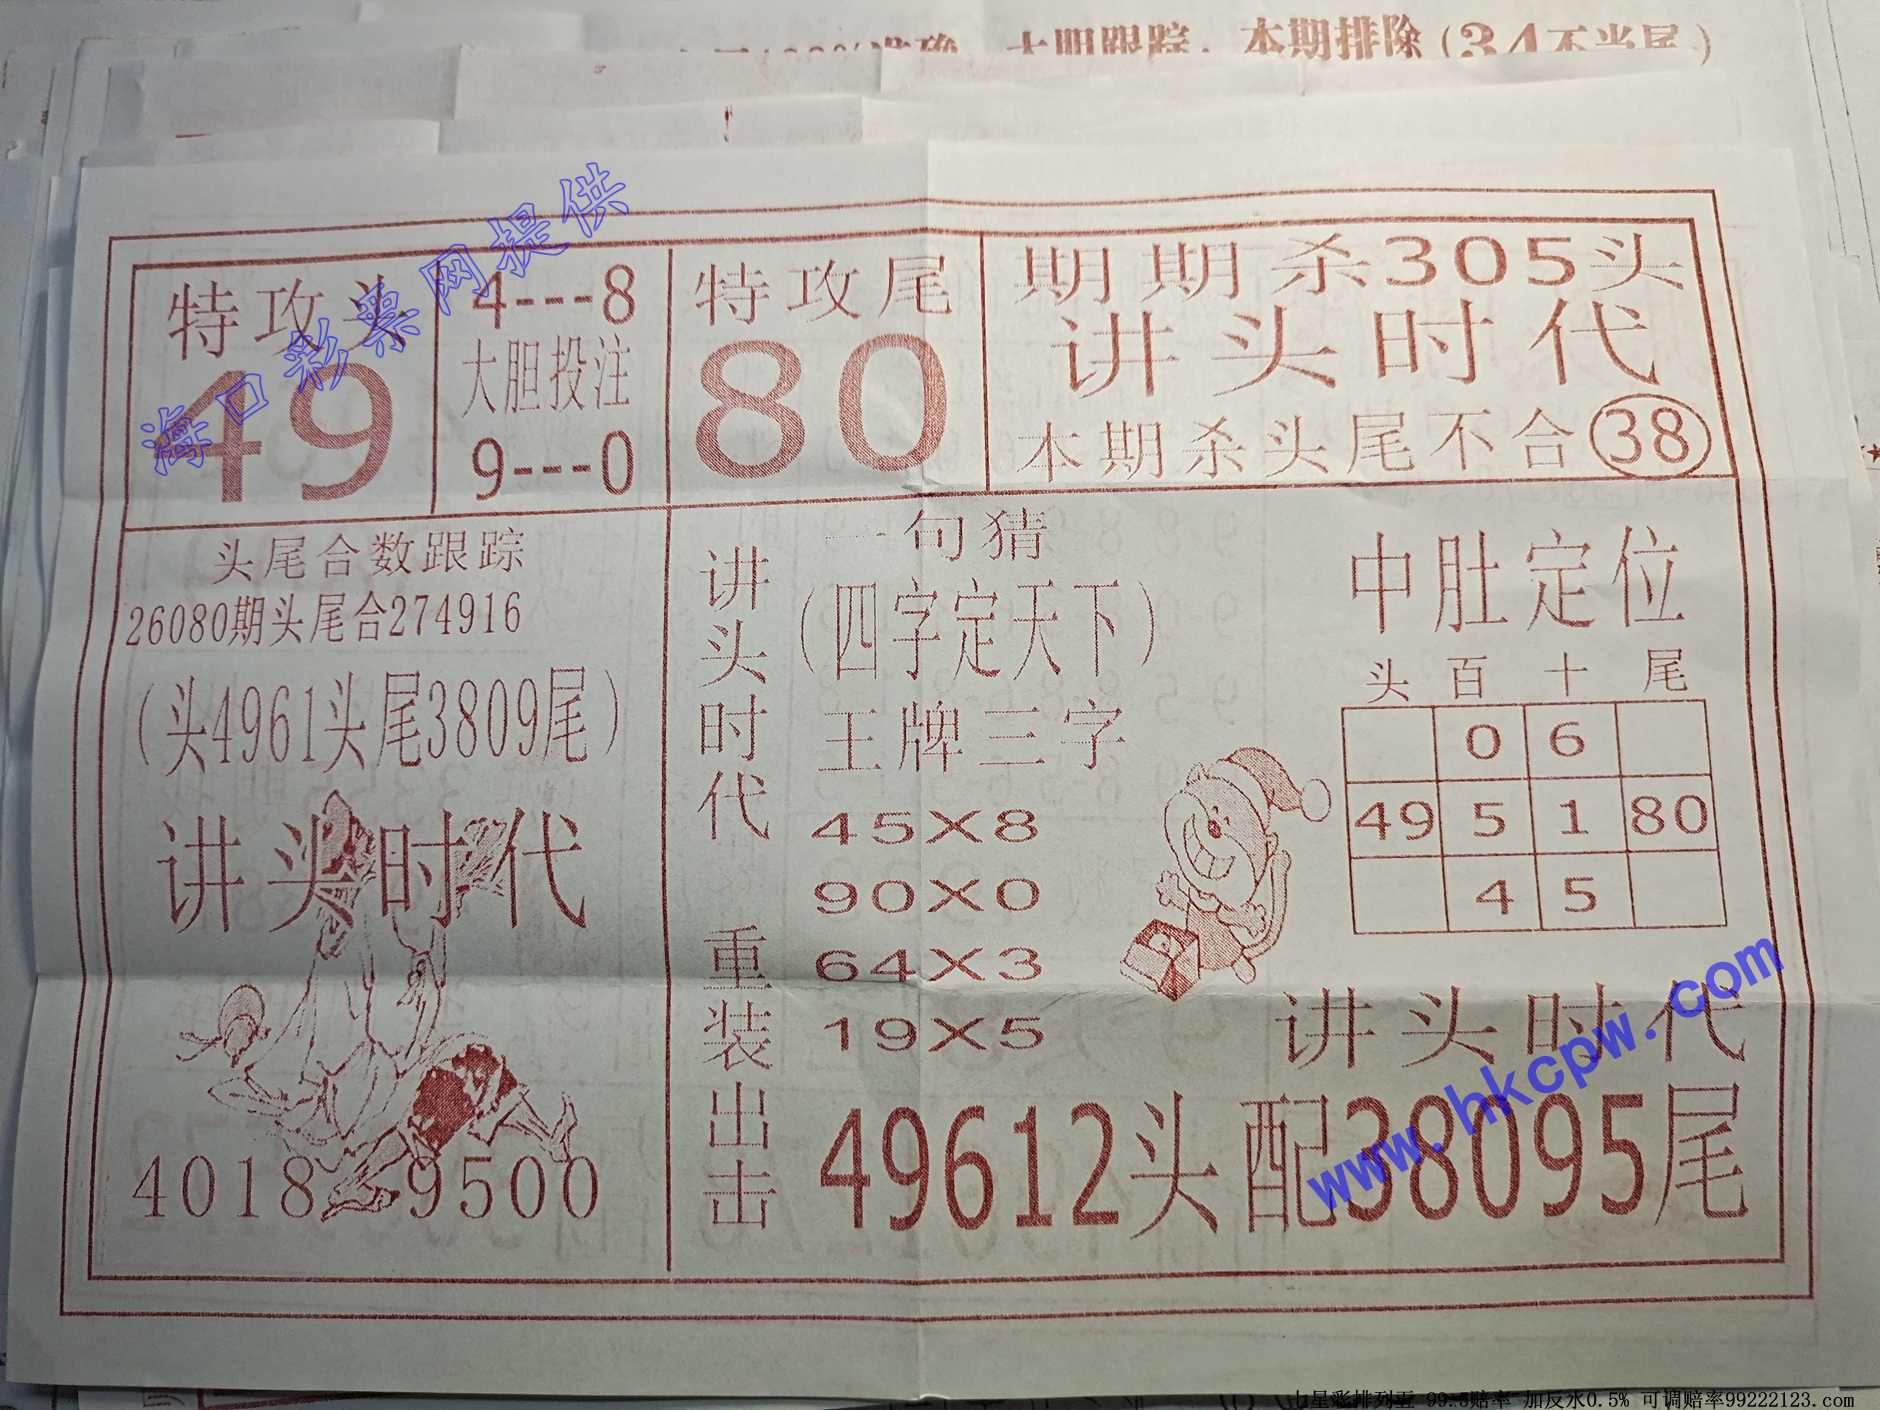 大胆跟踪，本期排除(34不当尾)
海口彩票网提供
特攻头
49
4---8
大胆投注
9---0
特攻尾
80
期期杀305头
讲头时代
本期杀头尾不合38
头尾合数跟踪
26080期头尾合274916
(头4961头尾3809尾)
讲头时代
4018 9500
讲头时代 重装出击
一句猜
(四字定天下)
王牌三字
45X8
90X0
64X3
19X5
中肚定位
头 百 十 尾
0 6
49 5 1 80
4 5
讲头时代
49612头配38095尾
www.hkcpw.com
七星彩排列五 99.5赔率 加反水0.5% 可调赔率99222123.com